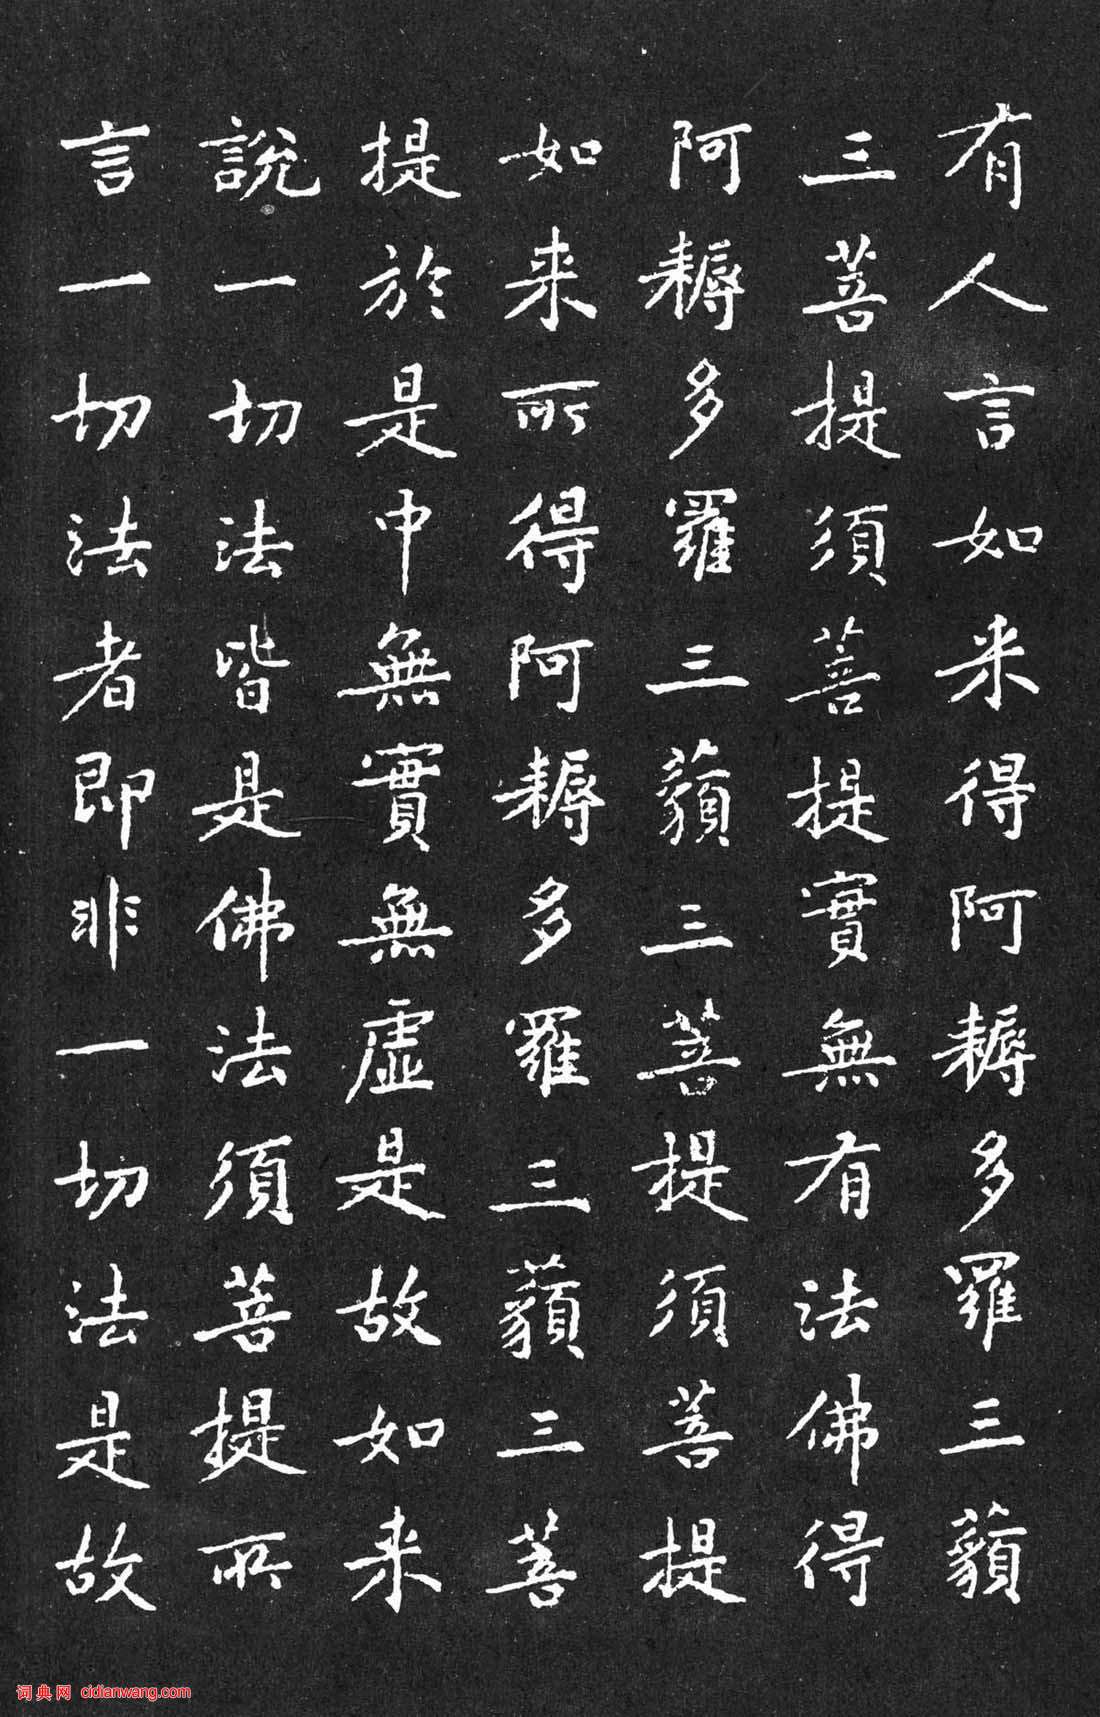 有人言如来得阿耨多羅三藐
三菩提須菩提實無有法佛得
阿耨多羅三藐三菩提須菩提
如来所得阿耨多羅三藐三菩
提於是中無實無虛是故如来
說一切法皆是佛法須菩提所
言一切法者即非一切法是故
词典网 cidianwang.com